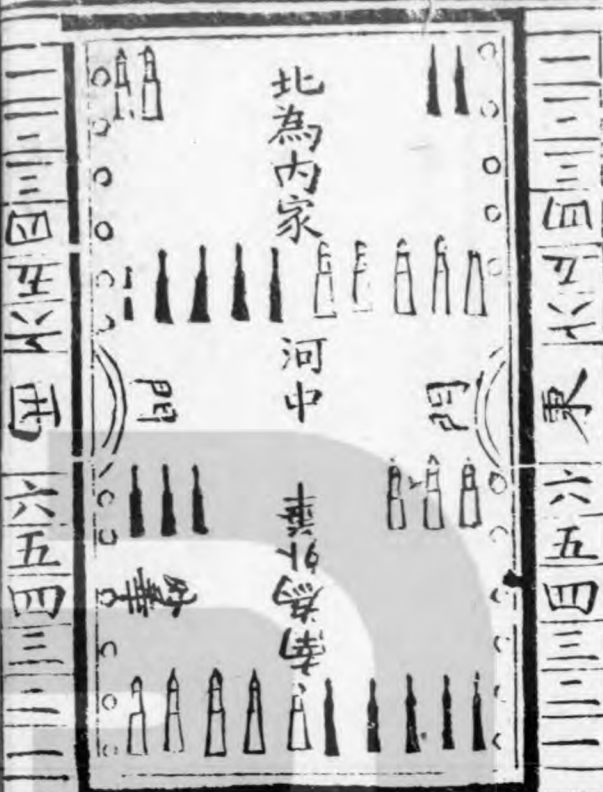 一 二 三 四 五 六 東 六 五 四 三 二 一
北為內家
河中
門
門
南為外
一 二 三 四 五 六 西 六 五 四 三 二 一